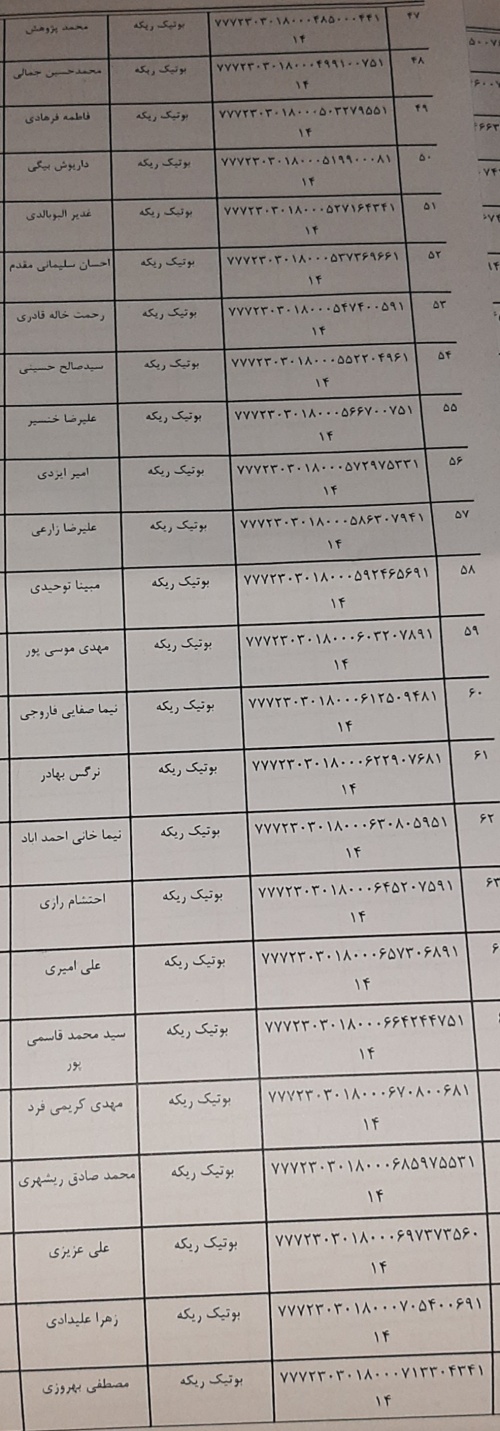 ۴۷ ۷۷۷۲۳۰۳۰۱۸۰۰۰۴۸۵۰۰۰۴۴۱ بوتیک ریکه محمد پژوهش
۱۴
۴۸ ۷۷۷۲۳۰۳۰۱۸۰۰۰۴۹۹۱۰۰۷۵۱ بوتیک ریکه محمدحسین جمالی
۱۴
۴۹ ۷۷۷۲۳۰۳۰۱۸۰۰۰۵۰۳۲۷۹۵۵۱ بوتیک ریکه فاطمه فرهادی
۱۴
۵۰ ۷۷۷۲۳۰۳۰۱۸۰۰۰۵۱۹۹۰۰۰۸۱ بوتیک ریکه داریوش بیگی
۱۴
۵۱ ۷۷۷۲۳۰۳۰۱۸۰۰۰۵۲۷۱۶۴۳۴۱ بوتیک ریکه غدیر البوبالدی
۱۴
۵۲ ۷۷۷۲۳۰۳۰۱۸۰۰۰۵۳۷۳۶۹۶۶۱ بوتیک ریکه احسان سلیمانی مقدم
۱۴
۵۳ ۷۷۷۲۳۰۳۰۱۸۰۰۰۵۴۷۴۰۰۵۹۱ بوتیک ریکه رحمت خاله قادری
۱۴
۵۴ ۷۷۷۲۳۰۳۰۱۸۰۰۰۵۵۲۲۰۴۹۶۱ بوتیک ریکه سیدصالح حسینی
۱۴
۵۵ ۷۷۷۲۳۰۳۰۱۸۰۰۰۵۶۶۷۰۰۷۵۱ بوتیک ریکه علیرضا خنسیر
۱۴
۵۶ ۷۷۷۲۳۰۳۰۱۸۰۰۰۵۷۲۹۷۵۳۳۱ بوتیک ریکه امیر ایزدی
۱۴
۵۷ ۷۷۷۲۳۰۳۰۱۸۰۰۰۵۸۶۳۰۷۹۴۱ بوتیک ریکه علیرضا زارعی
۱۴
۵۸ ۷۷۷۲۳۰۳۰۱۸۰۰۰۵۹۲۴۶۵۶۹۱ بوتیک ریکه مبینا توحیدی
۱۴
۵۹ ۷۷۷۲۳۰۳۰۱۸۰۰۰۶۰۳۲۰۷۸۹۱ بوتیک ریکه مهدی موسی پور
۱۴
۶۰ ۷۷۷۲۳۰۳۰۱۸۰۰۰۶۱۲۵۰۹۴۸۱ بوتیک ریکه نیما صفایی فاروجی
۱۴
۶۱ ۷۷۷۲۳۰۳۰۱۸۰۰۰۶۲۲۹۰۷۶۸۱ بوتیک ریکه نرگس بهادر
۱۴
۶۲ ۷۷۷۲۳۰۳۰۱۸۰۰۰۶۳۰۸۰۵۹۵۱ بوتیک ریکه نیما خانی احمد اباد
۱۴
۶۳ ۷۷۷۲۳۰۳۰۱۸۰۰۰۶۴۵۲۰۷۵۹۱ بوتیک ریکه احتشام رازی
۱۴
۷۷۷۲۳۰۳۰۱۸۰۰۰۶۵۷۳۰۶۸۹۱ بوتیک ریکه علی امیری
۱۴
۷۷۷۲۳۰۳۰۱۸۰۰۰۶۶۴۲۴۴۷۵۱ بوتیک ریکه سید محمد قاسمی
۱۴ پور
۷۷۷۲۳۰۳۰۱۸۰۰۰۶۷۰۸۰۰۶۸۱ بوتیک ریکه مهدی کریمی فرد
۱۴
۷۷۷۲۳۰۳۰۱۸۰۰۰۶۸۵۹۷۵۵۳۱ بوتیک ریکه محمد صادق ریشهری
۱۴
۷۷۷۲۳۰۳۰۱۸۰۰۰۶۹۷۳۷۳۵۶۰ بوتیک ریکه علی عزیزی
۱۴
۷۷۷۲۳۰۳۰۱۸۰۰۰۷۰۵۴۰۰۶۹۱ بوتیک ریکه زهرا علیدادی
۱۴
۷۷۷۲۳۰۳۰۱۸۰۰۰۷۱۳۳۰۴۳۴۱ بوتیک ریکه مصطفی بهروزی
۱۴